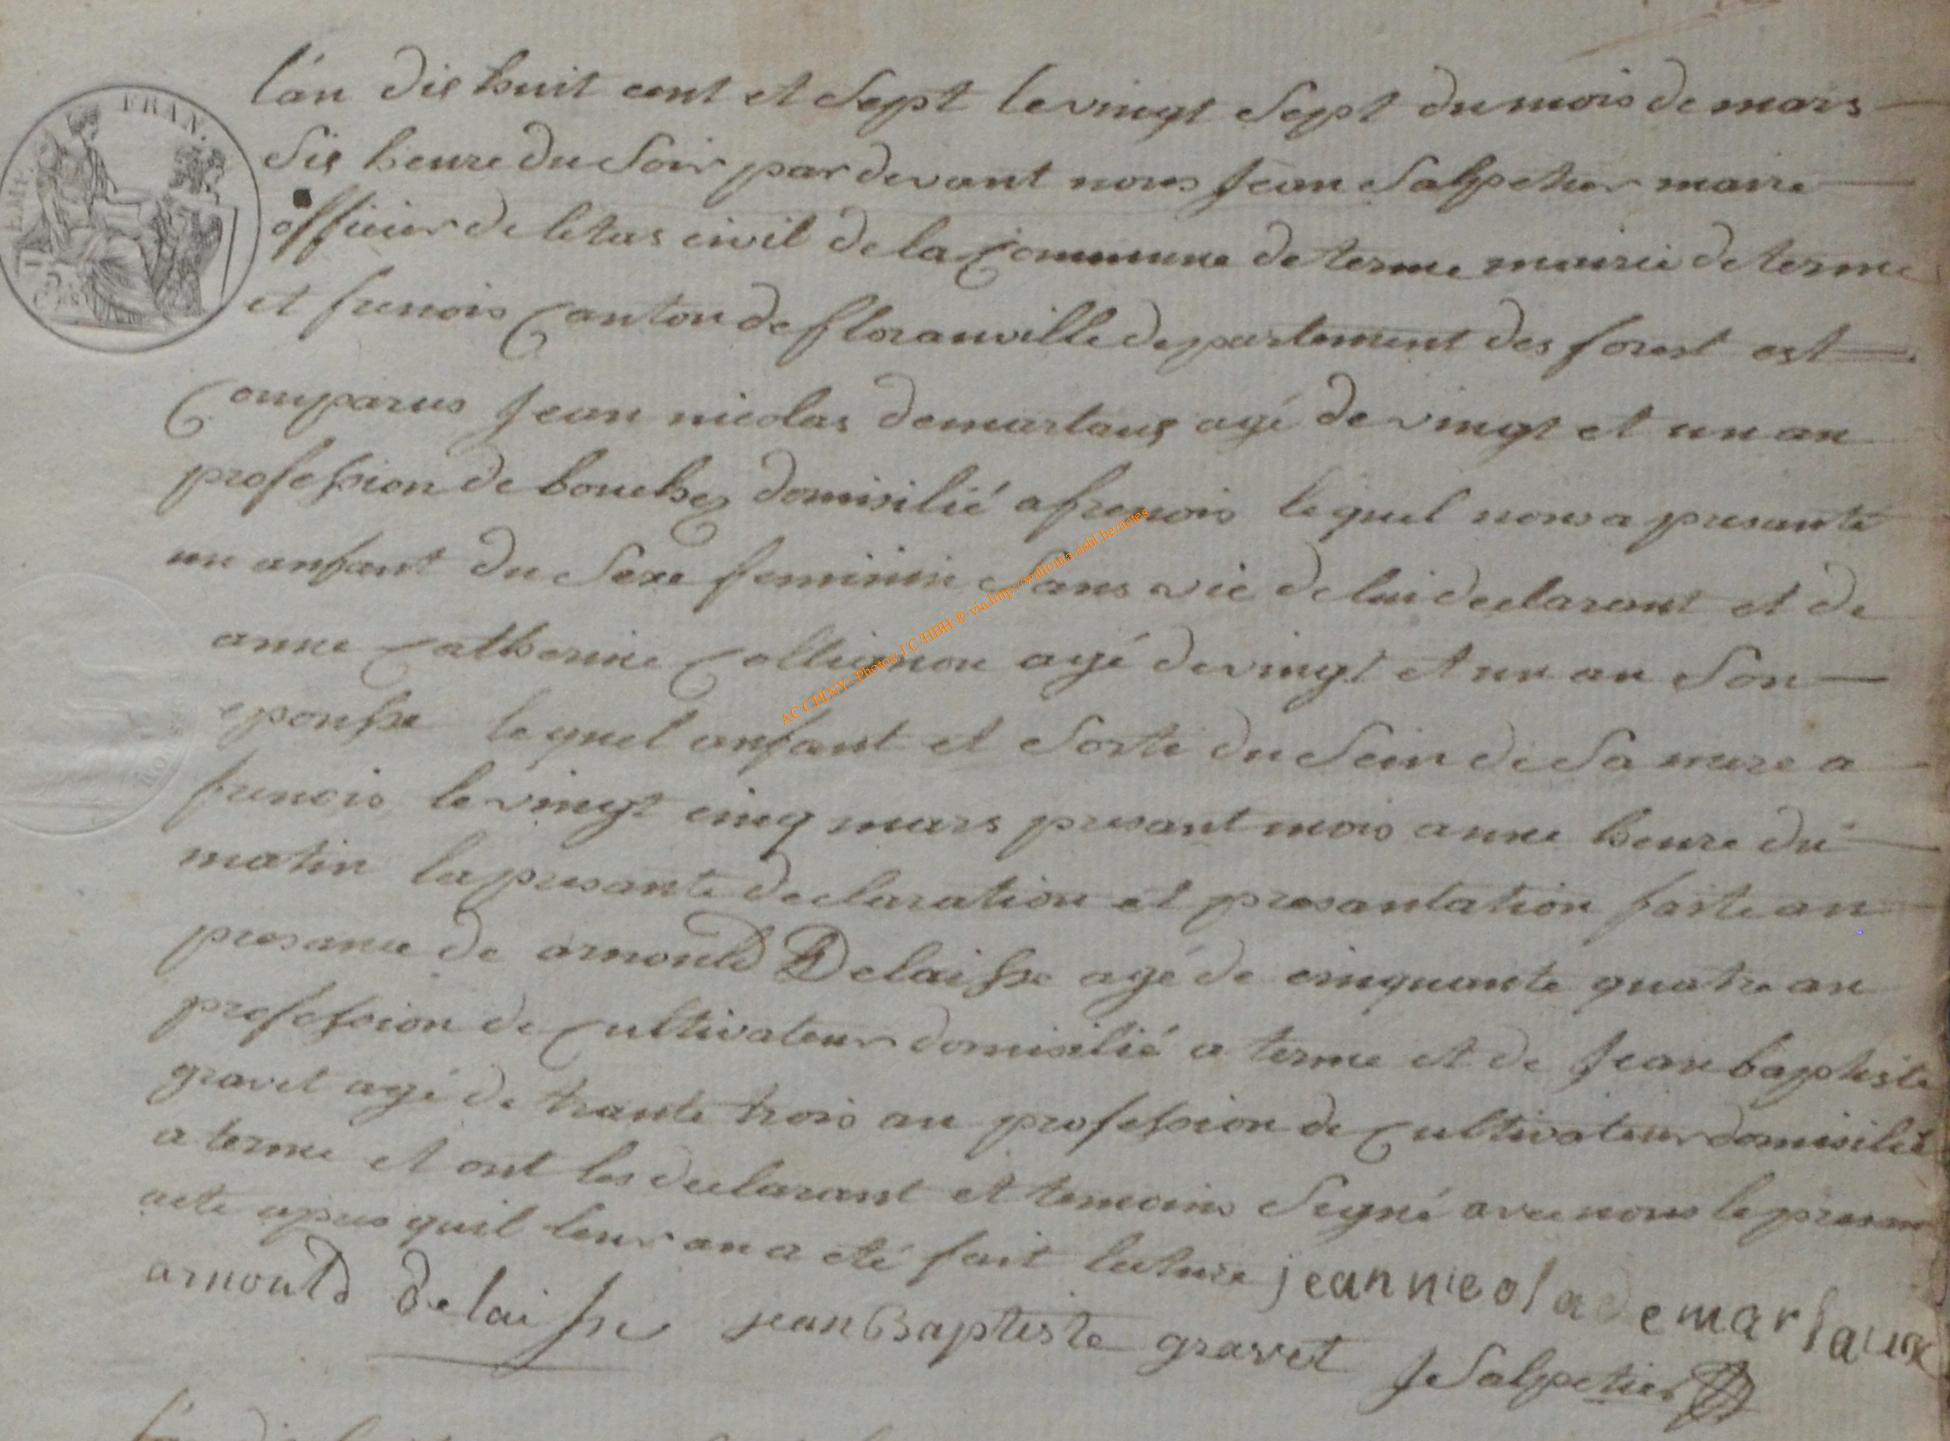 FRAN.
l'an dix huit cent et sept le vingt sept du mois de mars
six heure du soir par devant nous jean Salpetier maire
officier de letas civil de la Commune de terme mairie de terme
et frenois Canton de floranville departement des forest est
Comparus jean nicolas demartaux agé de vingt et un an
profession de domisilié a frenois lequel nous a presanté
un anfant du sexe feminin sans vie de lui declarant et de
anne Catherine Collignon agé de vingt et un an son
epousse lequel anfant et sorti du sein de sa mere a
frenois le vingt cinq mars presant mois a une heure du
matin la presante declaration et presantation faite an
presance de arnould Delaisse agé de cinquante quatre an
profession de Cultivateur domisilié a terme et de jean baptiste
gravet agé de trante trois an profession de Cultivateur domisilié
a terme et ont les declarant et temoins signé avec nous le presan
acte apres quil leur an a eté fait lecture jean nicola demartaux
arnould delaisse jean Baptiste gravet J Salpetier
AC CHIXY - Photos J C HBH ® via